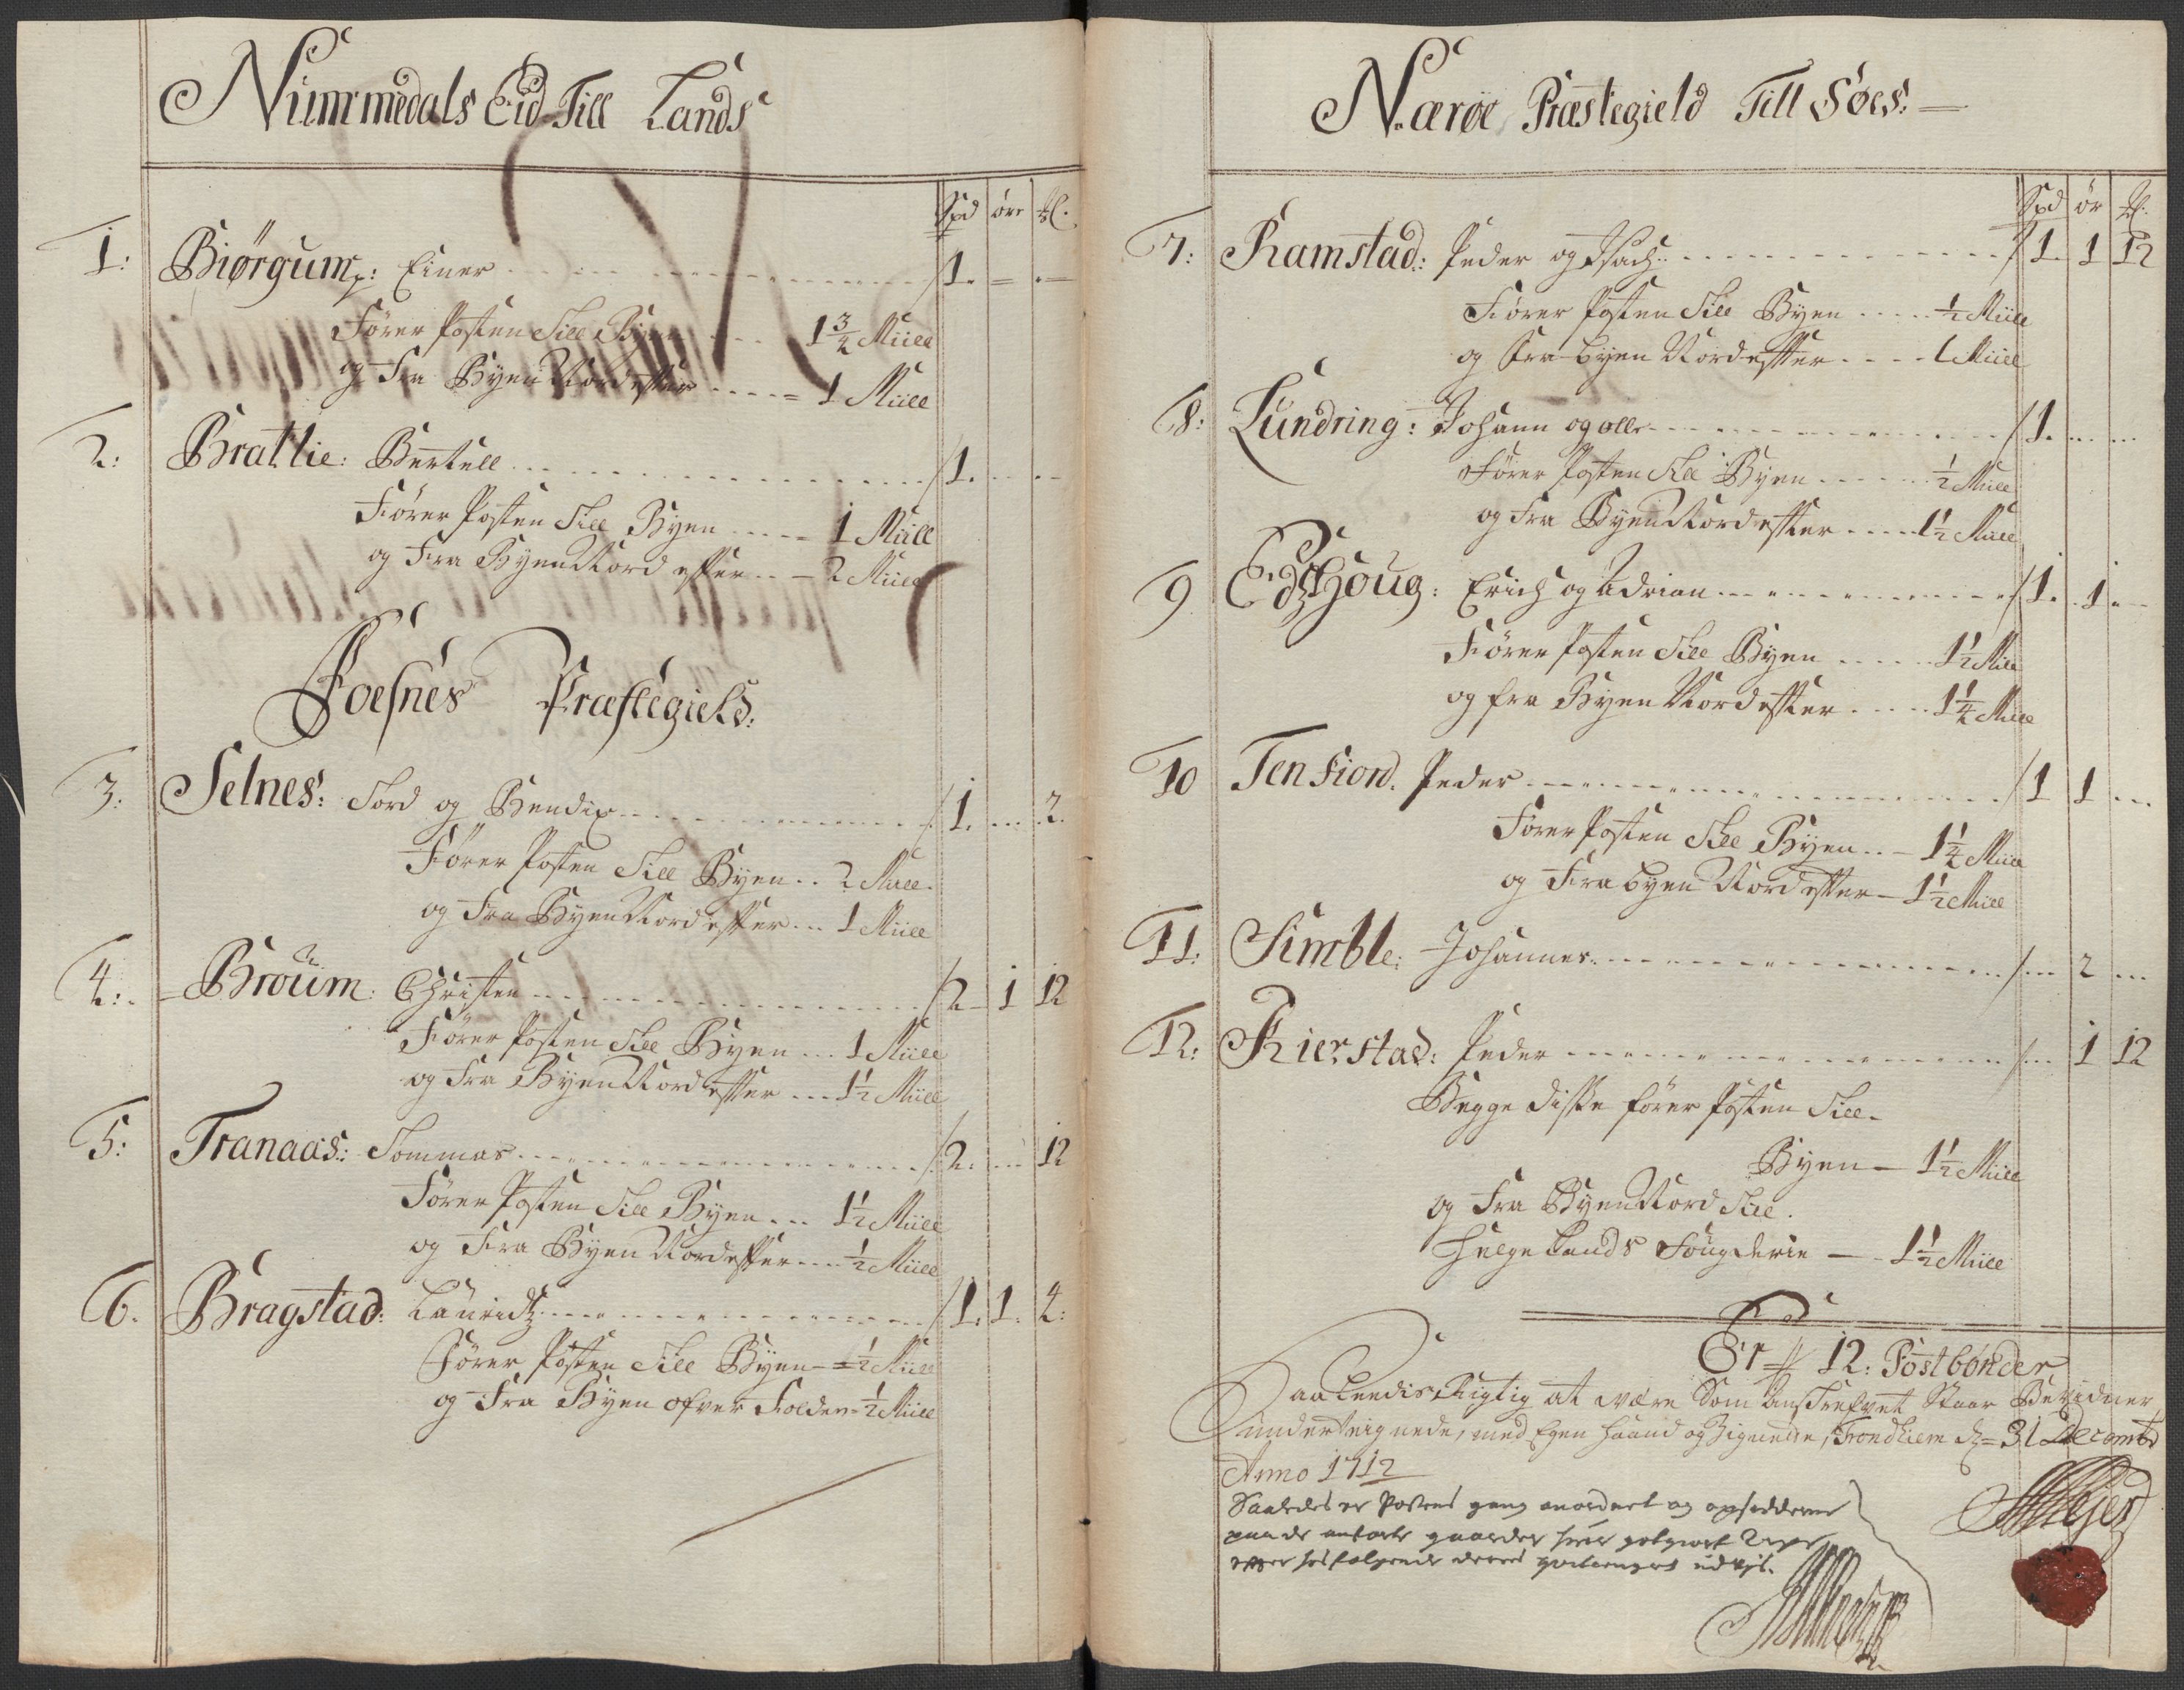 Nummedals Eid Till Lands
Spd øre
1: Biørgum: Einer 1. = . —
Fører Posten Till Byen 1 3/4 Miill
og Fra Byen Nordefter 1 Miill
2: Brattie: Bertell 1. ... ...
Fører Posten Till Byen 1 Miill
og Fra Byen Nord efter 2 Miill
Foesnes Præstegield:
3: Selnes: Tord og Bendix 1. ... 2.
Fører Posten Till Byen .. 2 Miill.
og Fra Byen Nordefter ... 1 Miill
4: Broüm: Christen 2 1 12
Fører Posten Till Byen ... 1 Miill
og Fra Byen Nordefter ... 1 1/2 Miill
5: Tranaas: Tommas 2. ... 12
Fører Posten Till Byen ... 1 1/2 Miill
og Fra Byen Nordefter ... 1/2 Miill
6. Bragstad: Lauridtz 1. 1. 4:
Fører Posten Till Byen = 1/2 Miill
og Fra Byen ofver Folden = 1/2 Miill
Nærøe Præstegield Till Søes: —
Spd ør
7: Ramstad: Peder og Isach 1. 1 12
Fører Posten Till Byen 1/2 Miill
og Fra byen Nordefter 1 Miill
8: Lundring: Johann og olle 1. ... ...
Fører Posten Till Byen 1/2 Miill
og Fra Byen Nordefter 1 1/2 Miill
9 Edshoug: Erich og Adrian 1. 1 . —
Fører Posten Till Byen 1 1/2 Miill
og fra Byen Nordefter 1 1/4 Miill
10 Tensiord. Peder 1 1 ...
Fører Posten Till Byen .. 1 1/4 Miill
og Fra byen Nordefter — 1 1/2 Miill
11: Simble: Johannes ... 2 ...
12: Kierstad: Peder ... 1 12
Begge disse fører Posten Till
Byen — 1 1/2 Miill
og Fra Byen Nord Till
Helgelands Fougderie — 1 1/2 Miill
Er 12: Postbønder
Saaledis Rigtig at være Som Anskrefvet Staar Bevidner
underteignede, med Egen Haand og Signette, Trondhiem d: 31 Decembr
Anno 1712
Saaledes er Postens gang anordnet og opsidderne
paa de anførte gaarder
efter følgende deres udvjs.